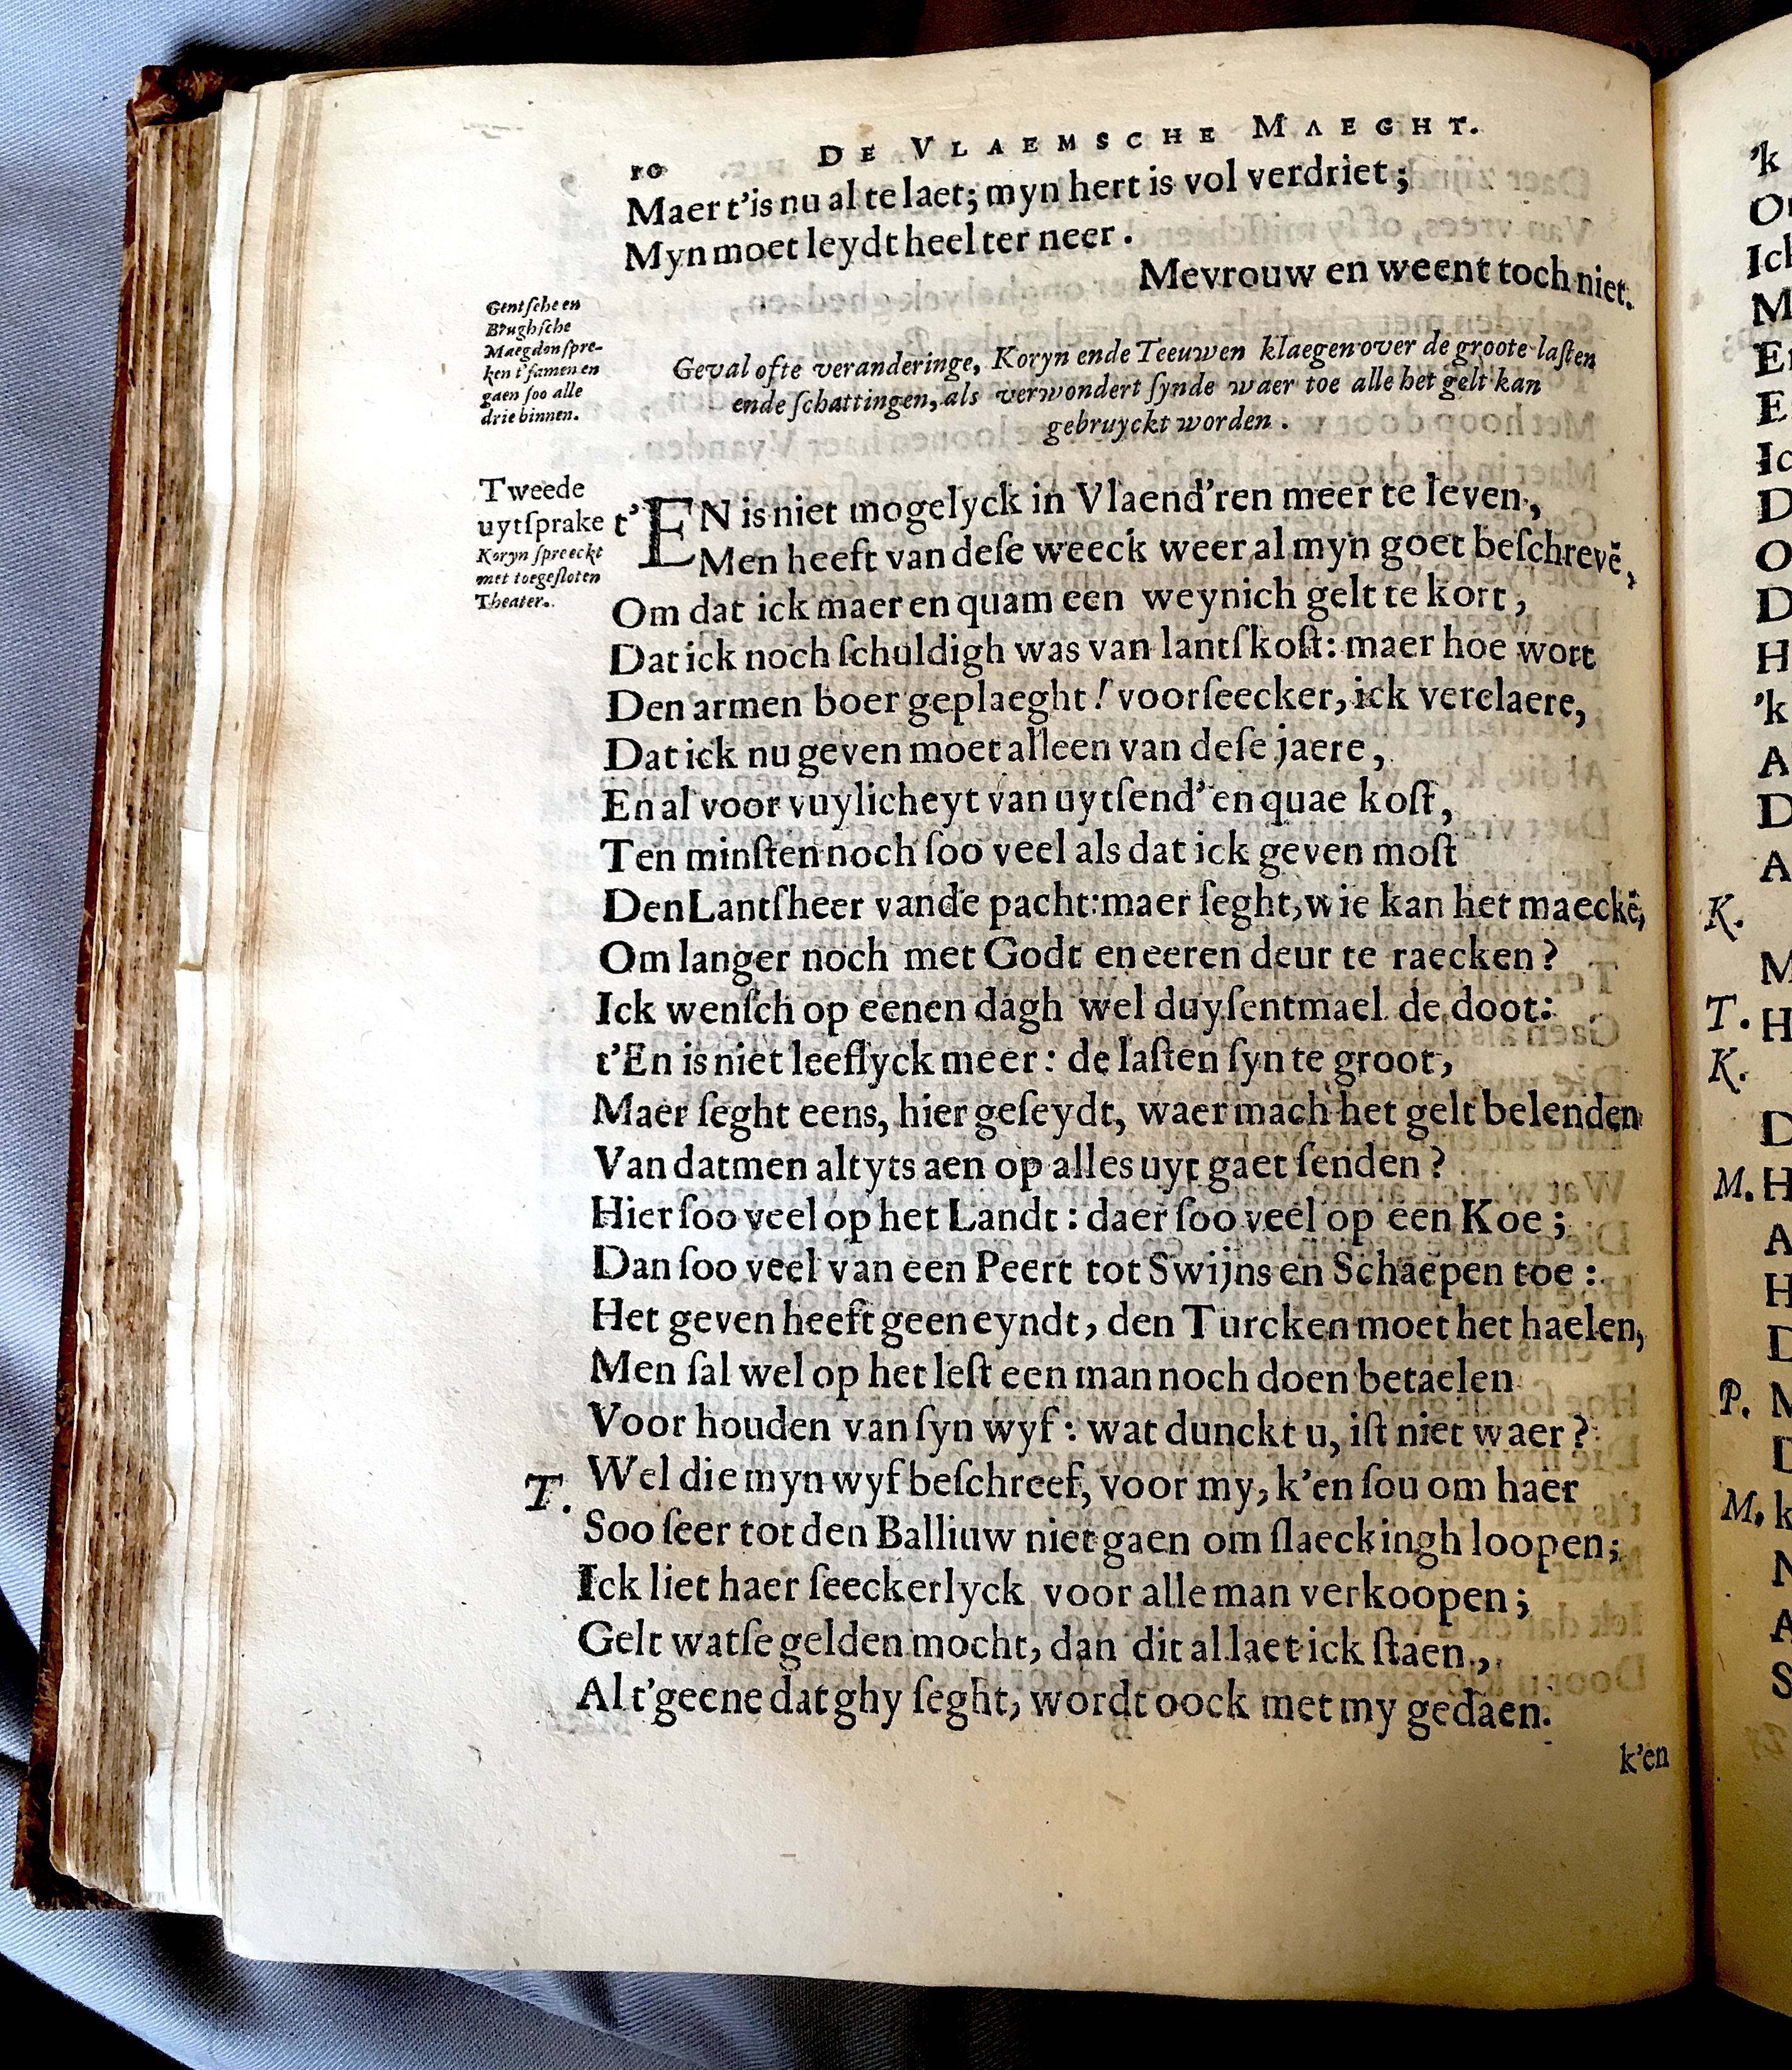 10 DE VLAEMSCHE MAEGHT.
Maer t'is nu al te laet; myn hert is vol verdriet;
Myn moet leydt heel ter neer.
Mevrouw en weent toch niet.
Gentſche en
Brughſche
Maegdon ſpre-
ken t'ſamen en
gaen ſoo alle
drie binnen.
Geval ofte veranderinge, Koryn ende Teeuwen klaegen over de groote laſten
ende ſchattingen, als verwondert ſynde waer toe alle het gelt kan
gebruyckt worden.
Tweede
uytſprake
Koryn ſpreeckt
met toegeſloten
Theater.
t'EN is niet mogelyck in Vlaend'ren meer te leven,
Men heeft van deſe weeck weer al myn goet beſchrevẽ,
Om dat ick maer en quam een weynich gelt te kort,
Dat ick noch ſchuldigh was van lantſkoſt: maer hoe wort
Den armen boer geplaeght! voorſeecker, ick verclaere,
Dat ick nu geven moet alleen van deſe jaere,
En al voor vuylicheyt van uytſend' en quae koſt,
Ten minſten noch ſoo veel als dat ick geven moſt
Den Lantſheer vande pacht: maer ſeght, wie kan het maeckẽ,
Om langer noch met Godt en eeren deur te raecken?
Ick wenſch op eenen dagh wel duyſentmael de doot:
t'En is niet leeflyck meer: de laſten ſyn te groot,
Maer ſeght eens, hier geſeydt, waer mach het gelt belenden
Van datmen altyts aen op alles uyt gaet ſenden?
Hier ſoo veel op het Landt: daer ſoo veel op een Koe;
Dan ſoo veel van een Peert tot Swijns en Schaepen toe:
Het geven heeft geen eyndt, den Turcken moet het haelen,
Men ſal wel op het leſt een man noch doen betaelen
Voor houden van ſyn wyf: wat dunckt u, iſt niet waer?
T. Wel die myn wyf beſchreef, voor my, k'en ſou om haer
Soo ſeer tot den Balliuw niet gaen om ſlaeckingh loopen;
Ick liet haer ſeeckerlyck voor alle man verkoopen;
Gelt watſe gelden mocht, dan dit al laet ick ſtaen,
Al t'geene dat ghy ſeght, wordt oock met my gedaen.
k'en
'k
Ick
K.
T.
K.
M.
P.
M.